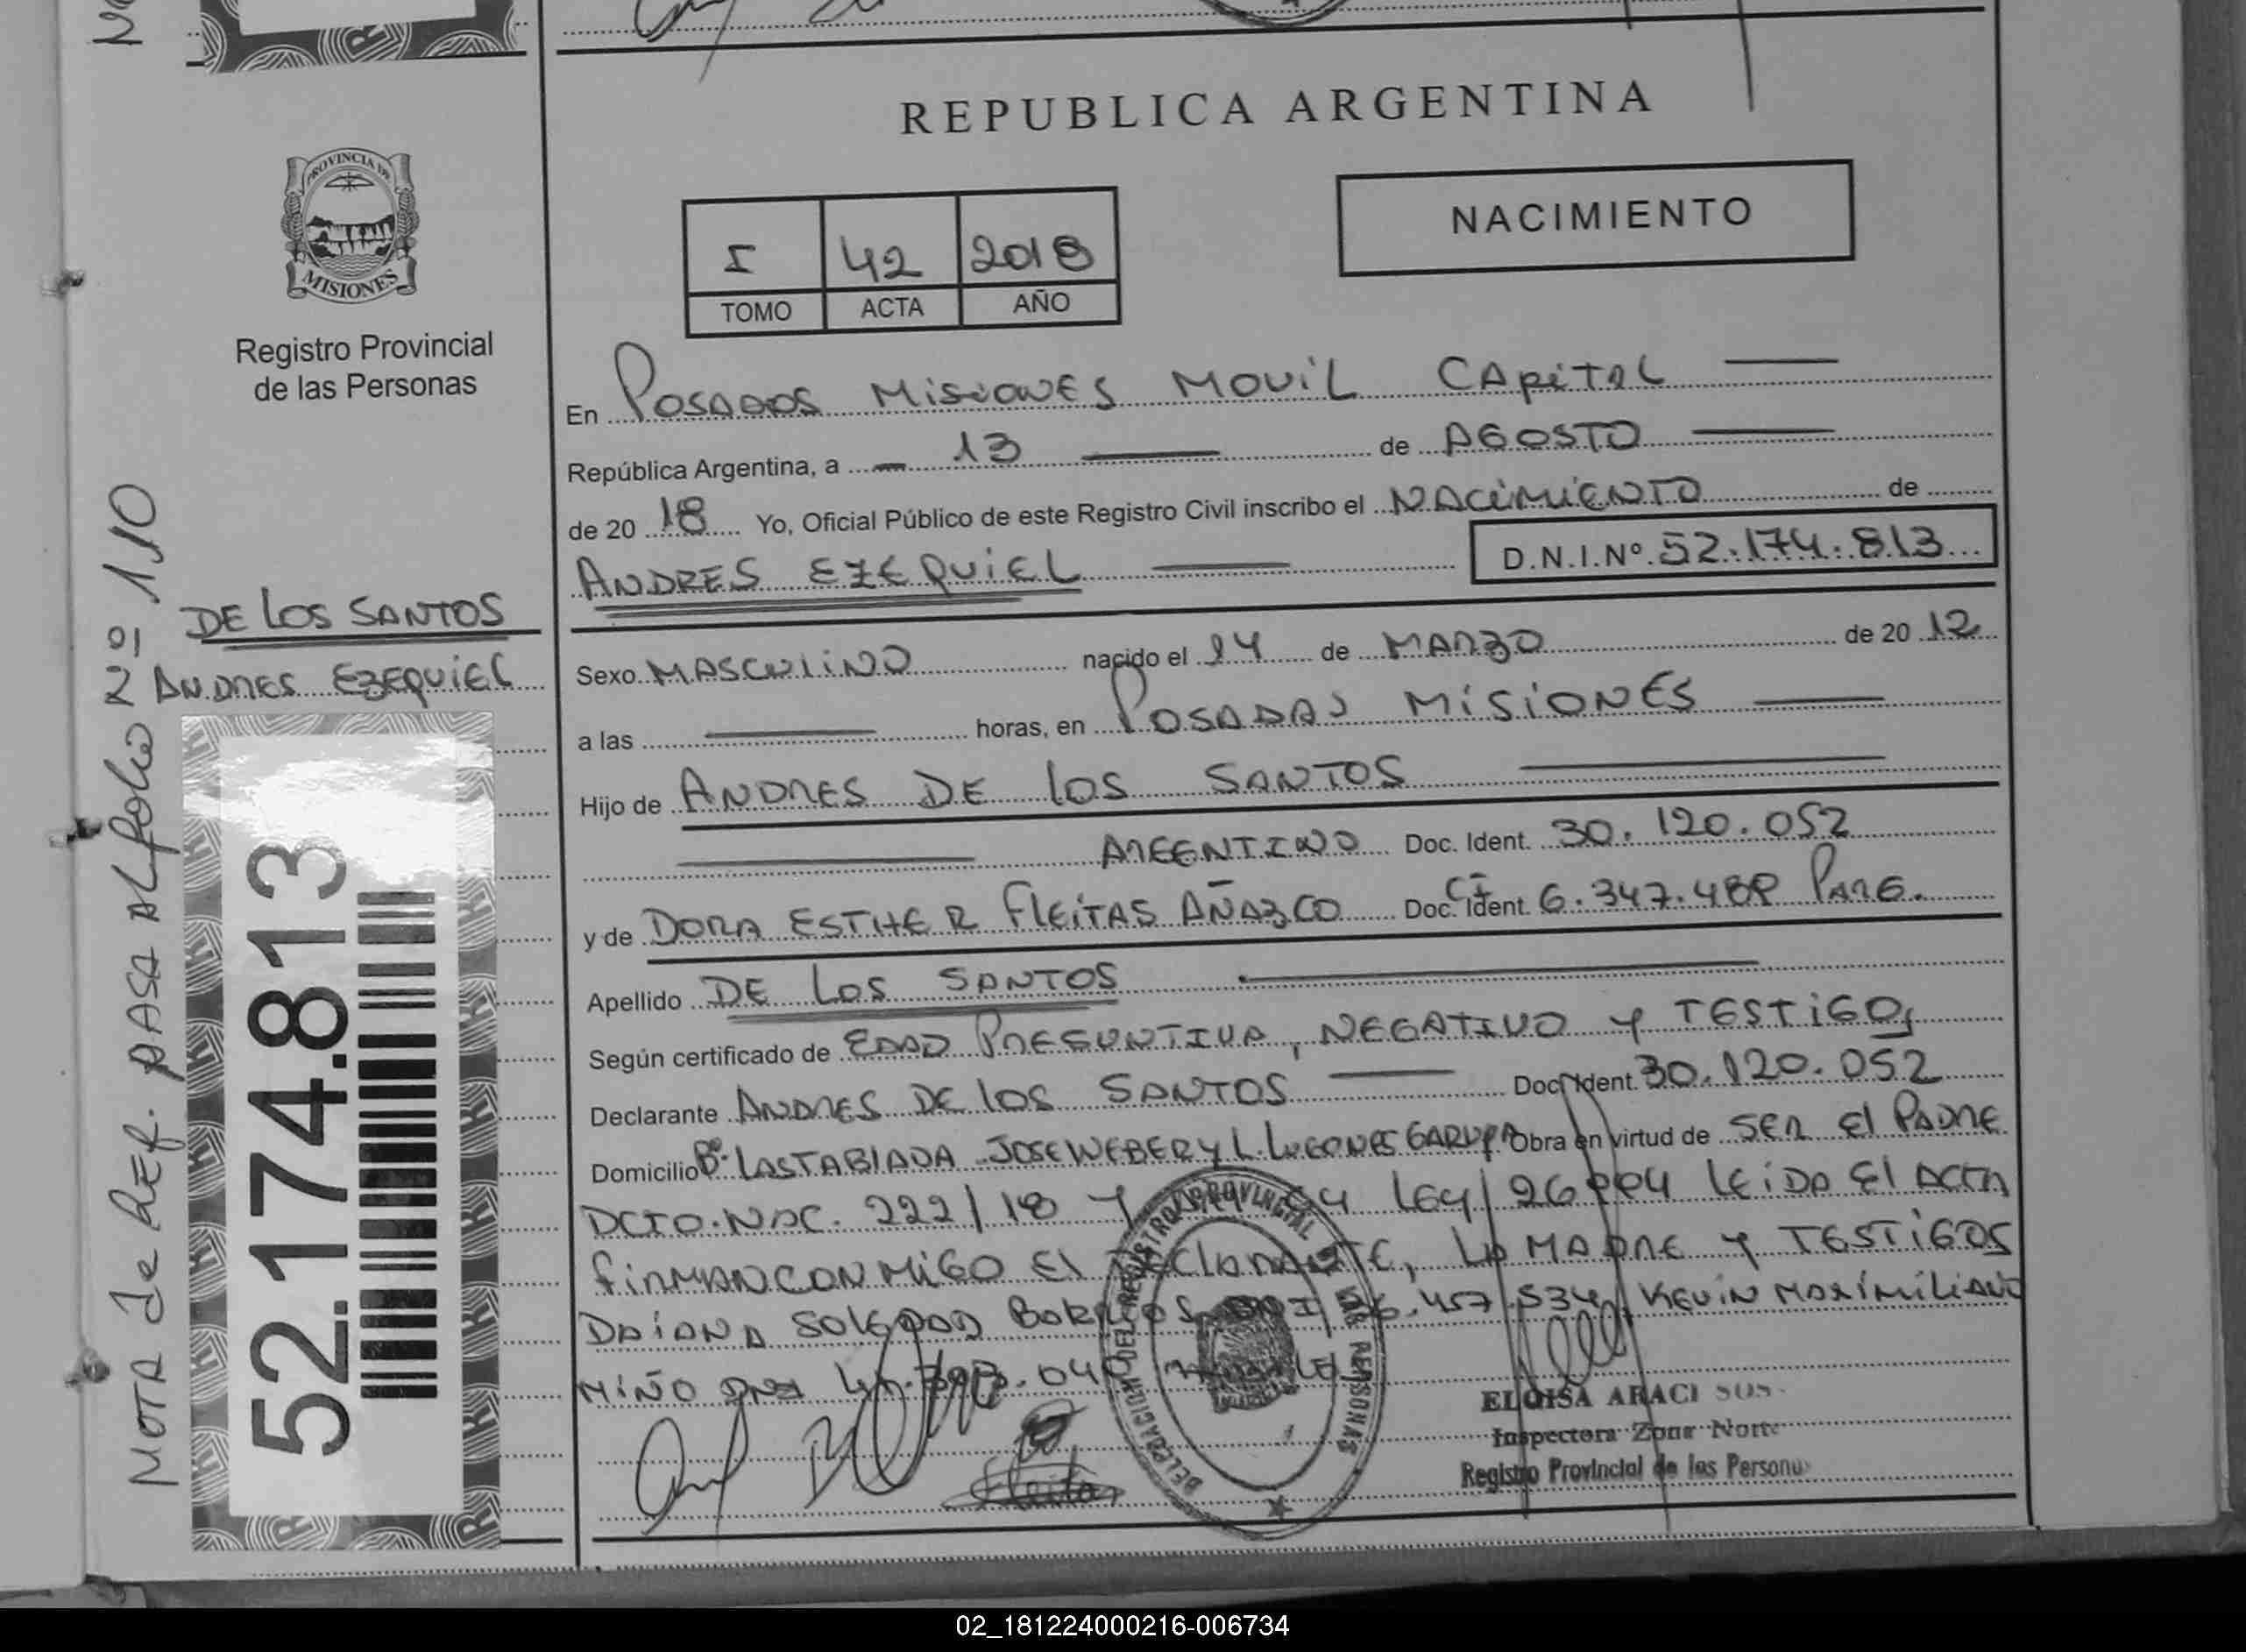 REPUBLICA ARGENTINA
PROVINCIA DE
MISIONES
Registro Provincial
de las Personas
I 42 2018
TOMO ACTA AÑO
NACIMIENTO
En POSADAS MISIONES MOVIL CAPITAL
República Argentina, a 13 de AGOSTO
de 20 18 Yo, Oficial Público de este Registro Civil inscribo el NACIMIENTO de
ANDRES EZEQUIEL D.N.I.Nº 52.174.813
DE LOS SANTOS
ANDRES EZEQUIEL
Sexo MASCULINO nacido el 14 de MARZO de 20 12
a las horas, en POSADAS MISIONES
Hijo de ANDRES DE LOS SANTOS
ARGENTINO Doc. Ident. 30.120.052
y de DORA ESTHER FLEITAS AÑAZCO Doc. Ident. CI 6.347.488 PARG.
Apellido DE LOS SANTOS
Según certificado de EDAD PRESUNTIVA, NEGATIVO Y TESTIGO,
Declarante ANDRES DE LOS SANTOS Doc. Ident. 30.120.052
Domicilio Bº LAS TABLADA JOSE WEBER Y L. LUGONES GARUPA Obra en virtud de SER El PADRE
DCTO. NAC. 222/18 Y LEY LEIDA El ACTA
FIRMAN CONMIGO El DECLARANTE, LA MADRE Y TESTIGOS
DAIANA SOLEDAD DNI 36.457.534 KEVIN MAXIMILIANO
MIÑO DNI
Fleitas
DELEGACION DEL REGISTRO PROVINCIAL DE LAS PERSONAS
ELOISA ARACI SOS
Inspectora Zona Norte
Registro Provincial de las Personas
52.174.813
NOTA de Ref. PASA AL folio Nº 110
02_181224000216-006734